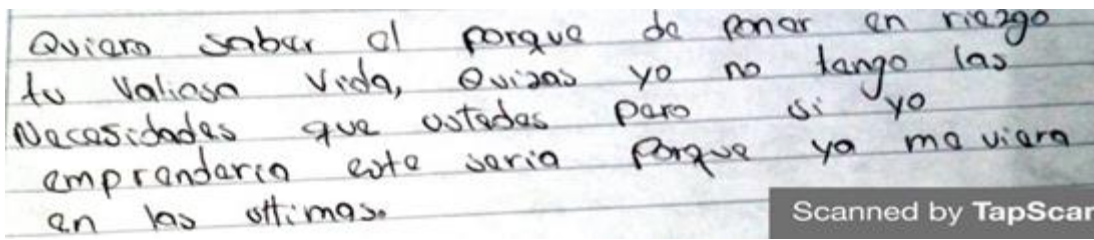 Quiero saber el porque de poner en riezgo
tu valiosa vida, Quizas yo no tengo las
Necesidades que ustedes pero si yo
emprenderia este seria porque ya me viera
en las ultimas.
Scanned by TapScan